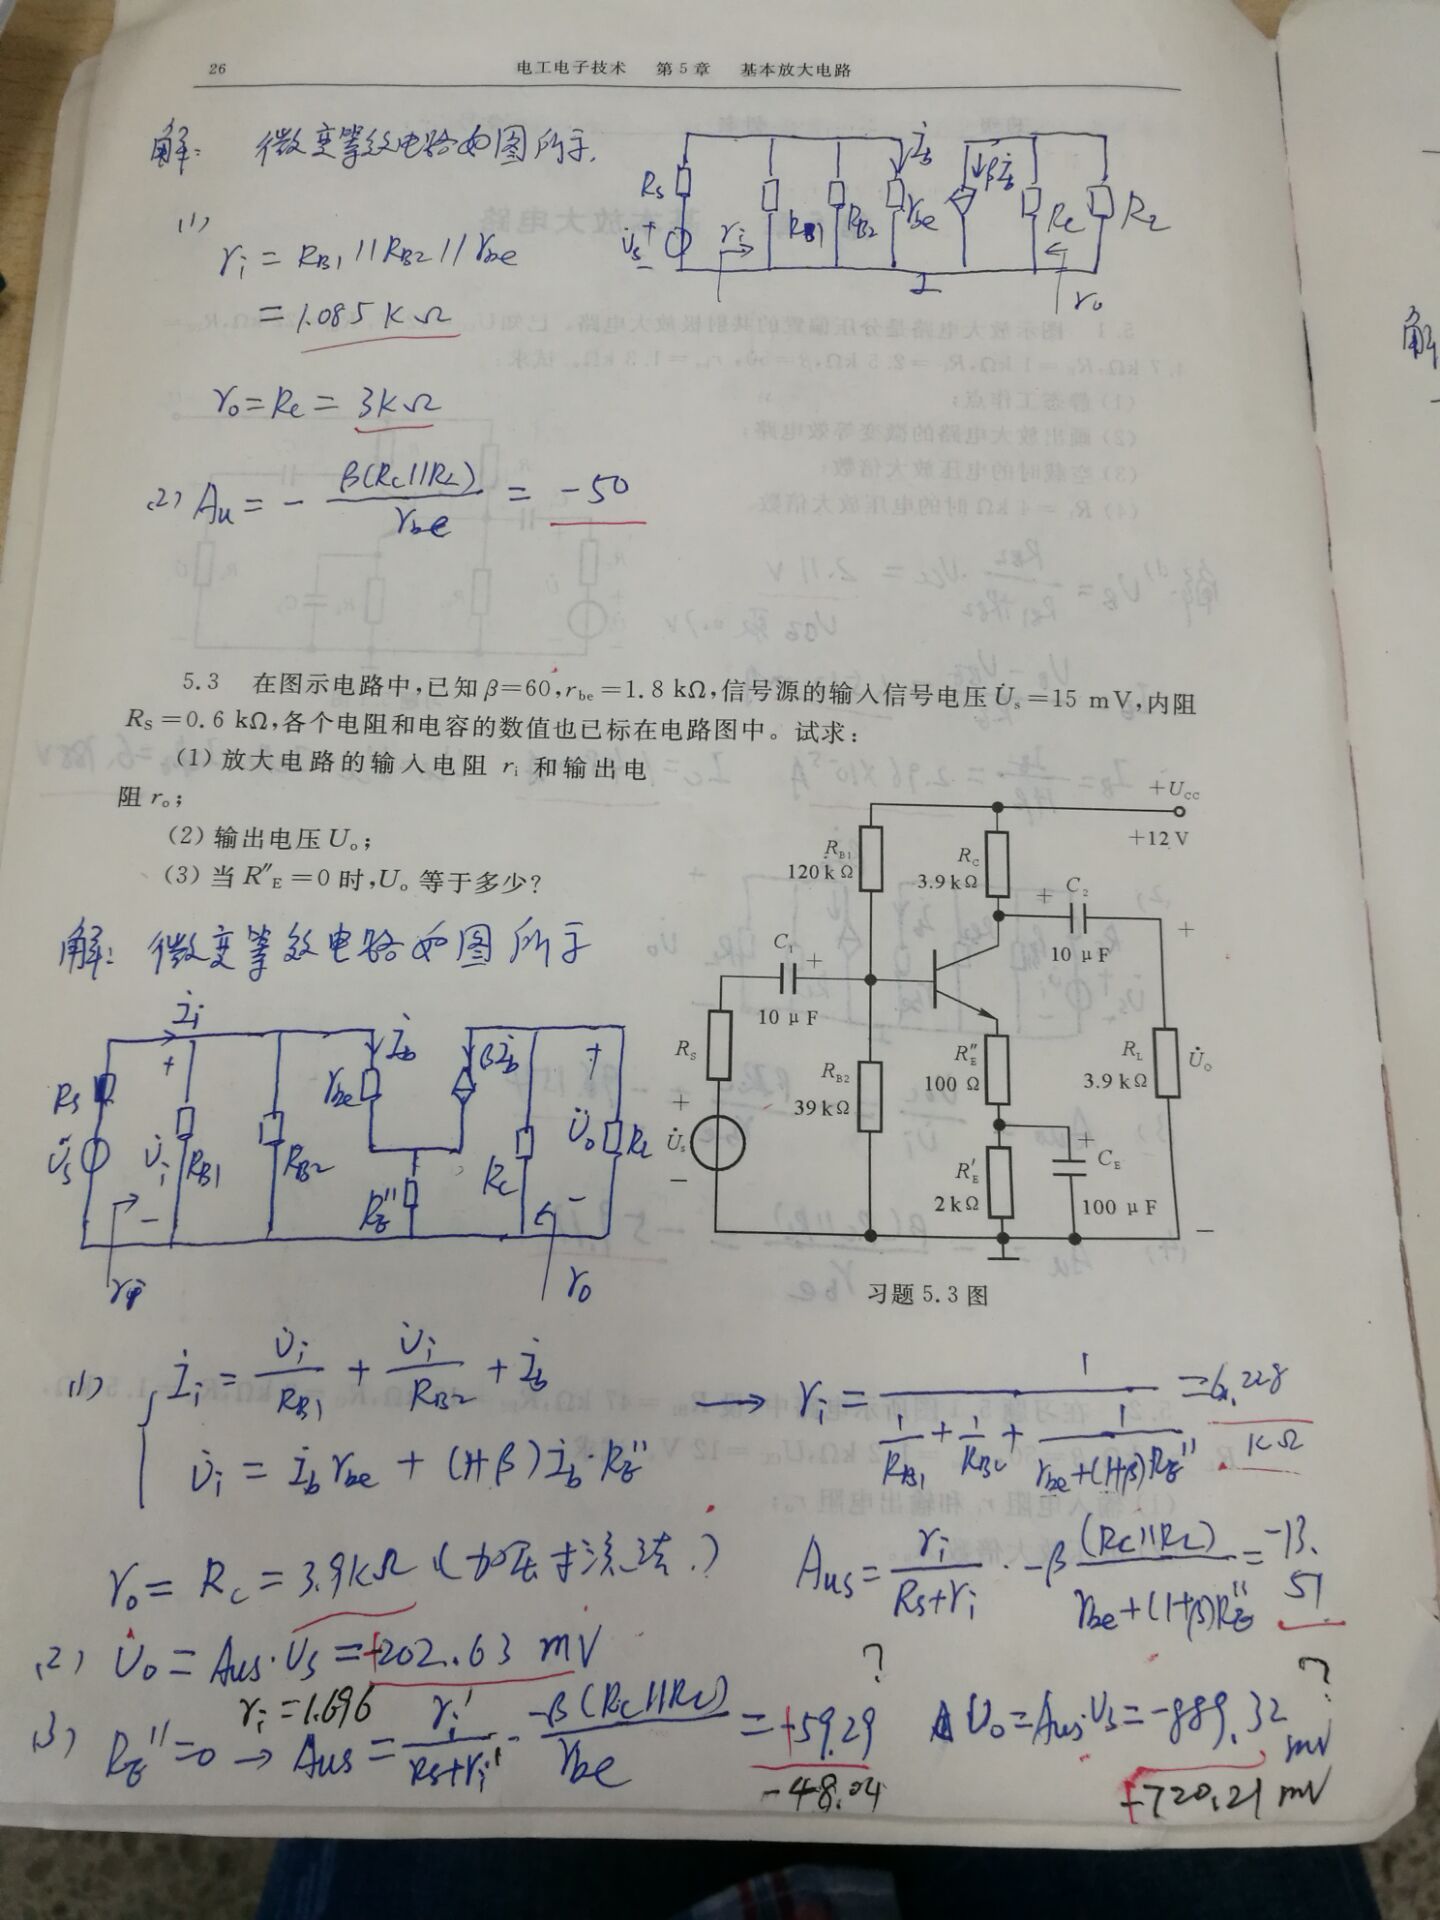 26 电工电子技术 第5章 基本放大电路
解: 微变等效电路如图所示.
Rs U̇s + - ri RB1 RB2 rbe İb βİb Rc RL ro
(1)
ri = RB1 // RB2 // rbe
= 1.085 KΩ
ro = Rc = 3KΩ
(2) Au = - β(Rc//RL) / rbe = -50
5.3 在图示电路中,已知β=60,rbe=1.8 kΩ,信号源的输入信号电压U̇s=15 mV,内阻
RS=0.6 kΩ,各个电阻和电容的数值也已标在电路图中。试求:
(1) 放大电路的输入电阻 ri 和输出电
阻 ro;
(2) 输出电压 Uo;
(3) 当 R″E=0 时,Uo 等于多少?
+UCC
+12 V
RB1
120 kΩ
RC
3.9 kΩ
+ C2
10 μF
+
C1 +
10 μF
RS
RB2
39 kΩ
R″E
100 Ω
RL
3.9 kΩ
U̇o
+
U̇s
-
R′E
2 kΩ
+
CE
100 μF
-
习题 5.3 图
解: 微变等效电路如图所示
İi Rs U̇s + U̇i - RB1 RB2 rbe İb βİb RE″ Rc + U̇o - RL ri ro
(1) İi = U̇i/RB1 + U̇i/RB2 + İb
U̇i = İb rbe + (1+β) İb · RE″
→ ri = 1 / (1/RB1 + 1/RB2 + 1/(rbe+(1+β)RE″)) = 6.228 KΩ
ro = Rc = 3.9KΩ (加压求流法.)
Aus = ri/(Rs+ri) · -β (Rc//RL) / (rbe+(1+β)RE″) = -13.51
(2) U̇o = Aus · Us = -202.63 mV
ri = 1.696
(3) RE″=0 → Aus = ri′/(Rs+ri′) · -β(Rc//RL)/rbe = -59.29 ?
-48.04
Uo = Aus·Us = -889.32 mV ?
-720.21 mV